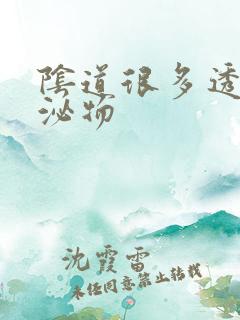 陰道很多透
泌物
沈霞雷
未经同意禁止转载